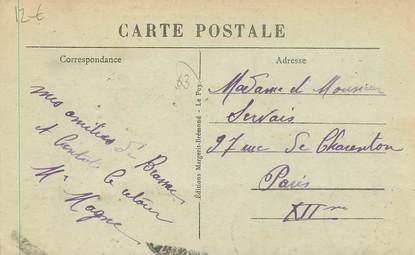 12-€
CARTE POSTALE
Correspondance
Adresse
83
mes amitiés de
A le retour
M. Magne
Éditions Margerit-Brémond - Le Puy
Madame et Monsieur
Servais
97 rue de Charenton
Paris
XII me